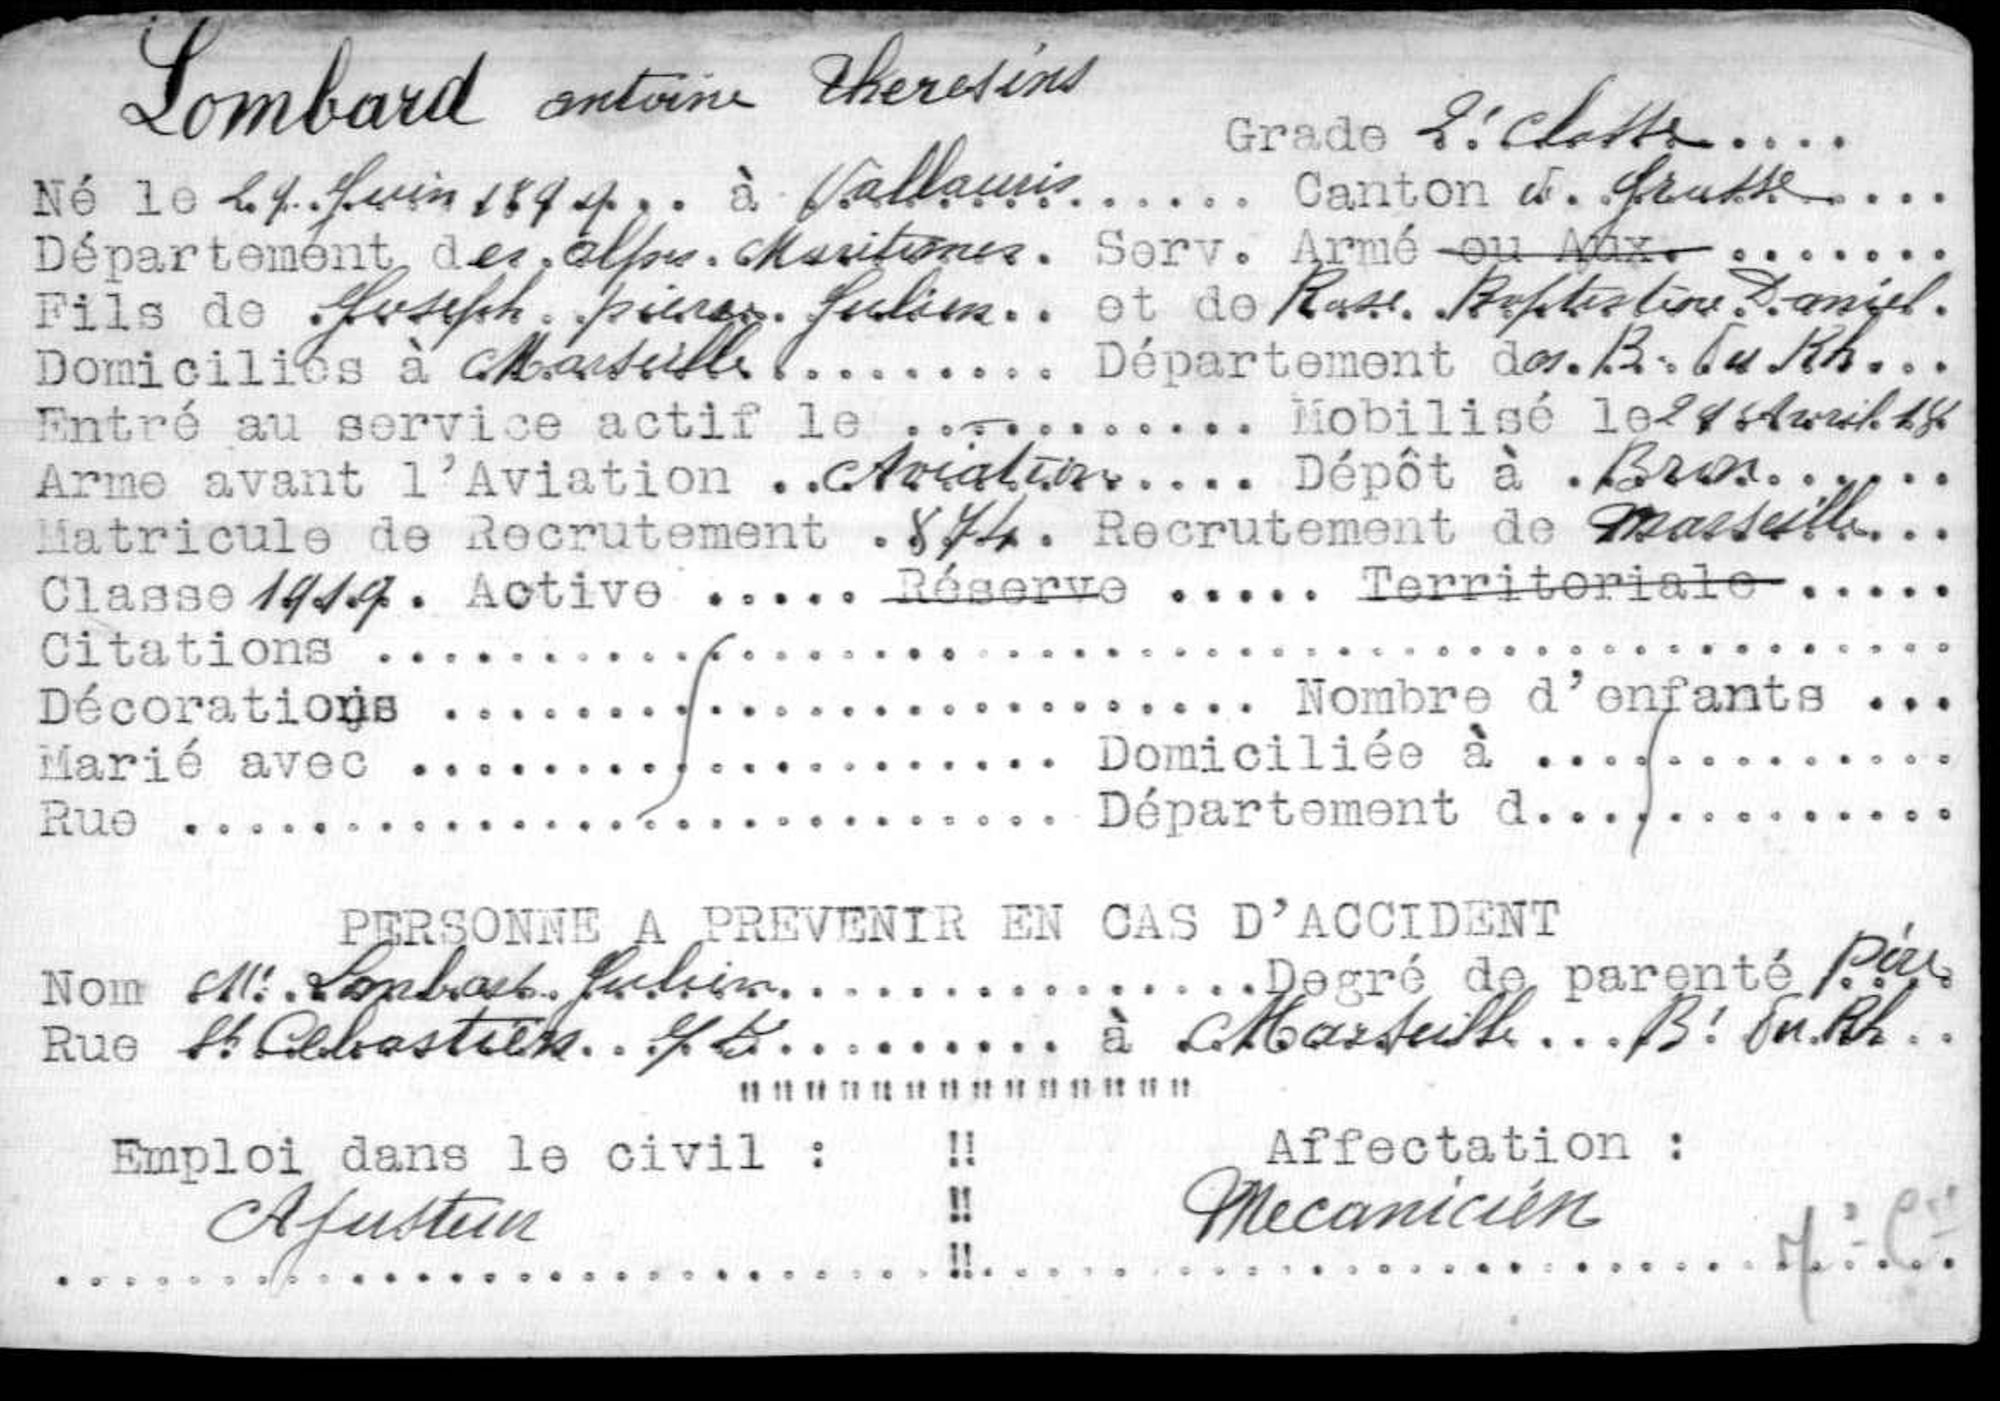 Lombard antoine theresins
Grade 2e classe....
Né le 29 Juin 1899... à Vallauris...... Canton d. Grasse....
Département des alpes. Maritimes. Serv. Armé ou Aux. .......
Fils de Joseph. pierre. Julien.. et de Rose. Baptistine Daniel.
Domiciliés à Marseille......... Département des. B. du Rh...
Entré au service actif le ........... Mobilisé le 21 Avril 18
Arme avant l'Aviation ..Aviation.... Dépôt à .Bron......
Matricule de Recrutement .874. Recrutement de Marseille...
Classe 1919. Active ..... Réserve ..... Territoriale .....
Citations ................................................
Décorations ......................... Nombre d'enfants ...
Marié avec .................... Domiciliée à .............
Rue ........................... Département d.............
PERSONNE A PREVENIR EN CAS D'ACCIDENT
Nom Mr. Lombard. Julien................Degré de parenté Père
Rue St Cebastien.. .......... à Marseille...B! du.Rh..
"""""""""""""""
Emploi dans le civil : !! Affectation :
Ajusteur !! Mecanicien
..........................!!..............................